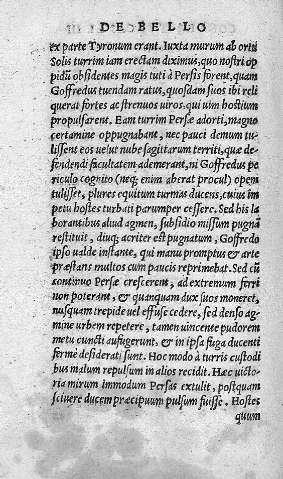 DE BELLO
ex parte Tyronum erant. Iuxta murum ab ortu
Solis turrim iam erectam diximus, quo nostri op
pidū obsidentes magis tuti à Persis forent, quam
Goffredus tuendam ratus, quosdam suos ibi reli
querat fortes ac strenuos uiros, qui uim hostium
propulsarent. Eam turrim Persæ adorti, magno
certamine oppugnabant, nec pauci demum tu-
lissent eos uelut nube sagittarum territi, quæ de-
fendendi facultatem ademerant, ni Goffredus pe
riculo cognito (neq; enim aberat procul) opem
tulisset, plures equitum turmas ducens, cuius im
petu hostes turbati parumper cessere. Sed his la
borantibus aliud agmen, subsidio missum pugnā
restituit, diuq; acriter est pugnatum, Goffredo
ipso ualde instante, qui manu promptus & arte
præstans multos cum paucis reprimebat. Sed cū
continuo Persæ crescerent, ad extremum ferri
non poterant, & quanquam dux suos moneret,
nusquam trepide uel effuse cedere, sed denso ag-
mine urbem repetere, tamen uincente pudorem
metu cuncti aufugerunt, & in ipsa fuga ducenti
ferme desiderati sunt. Hoc modo à turris custodi
bus malum repulsum in alios recidit. Hæc uicto
ria mirum immodum Persas extulit, postquam
sciuere ducem præcipuum pulsum fuisse. Hostes
quum